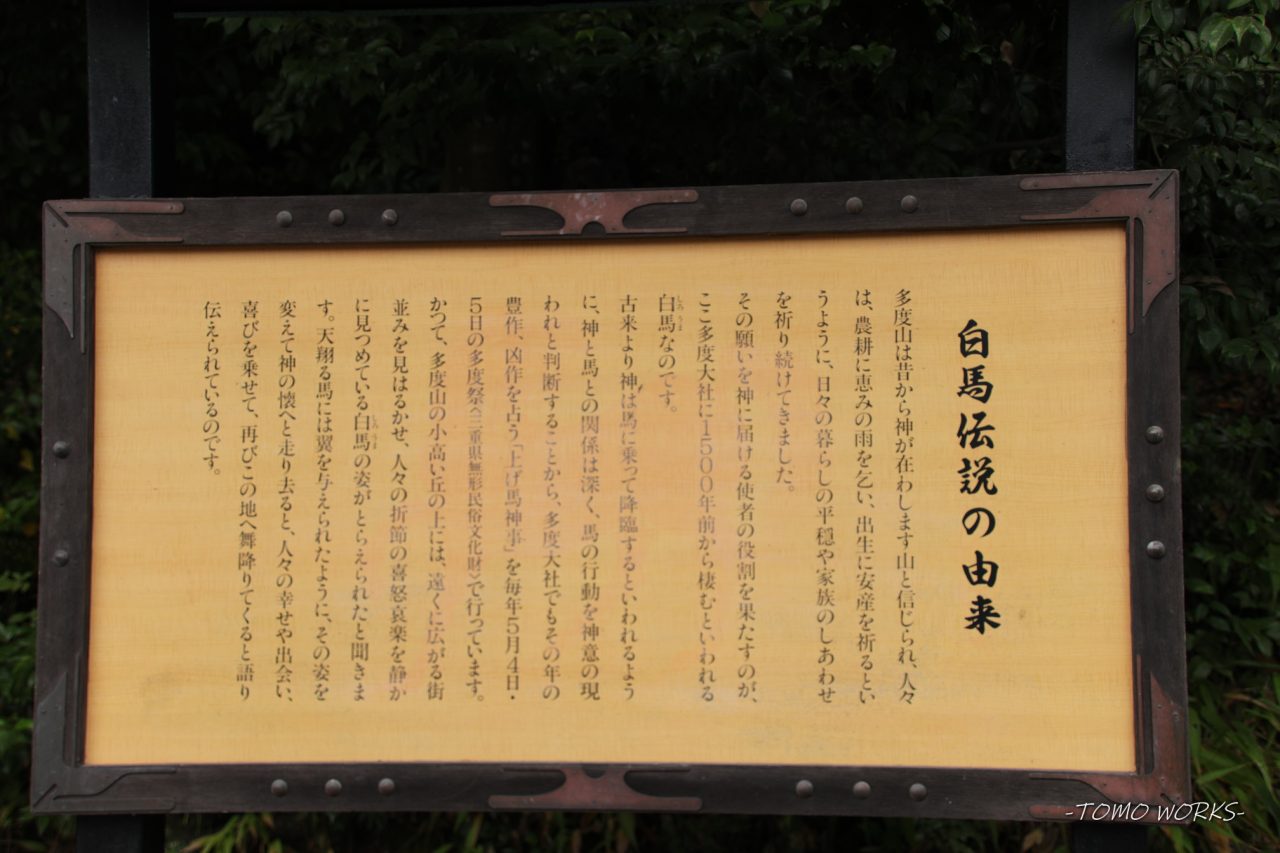 白馬伝説の由来
多度山は昔から神が在わします山と信じられ、人々
は、農耕に恵みの雨を乞い、出生に安産を祈るとい
うように、日々の暮らしの平穏や家族のしあわせ
を祈り続けてきました。
その願いを神に届ける使者の役割を果たすのが、
ここ多度大社に1500年前から棲むといわれる
白馬なのです。
しろうま
古来より神は馬に乗って降臨するといわれるよう
に、神と馬との関係は深く、馬の行動を神意の現
われと判断することから、多度大社でもその年の
豊作、凶作を占う「上げ馬神事」を毎年5月4日・
5日の多度祭〈三重県無形民俗文化財〉で行っています。
かつて、多度山の小高い丘の上には、遠くに広がる街
並みを見はるかせ、人々の折節の喜怒哀楽を静か
に見つめている白馬の姿がとらえられたと聞きま
しろうま
す。天翔る馬には翼を与えられたように、その姿を
変えて神の懐へと走り去ると、人々の幸せや出会い、
喜びを乗せて、再びこの地へ舞降りてくると語り
伝えられているのです。
-TOMO WORKS-